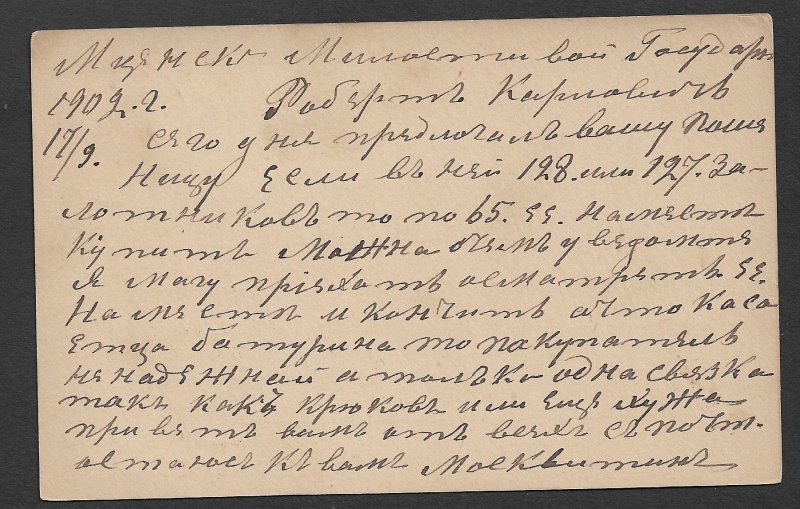 Мценск Милостивой Государь
1902.г. Робертъ Карловичъ
17/9. сего дня предлогалъ вашу пше
Ницу если въ ней 128. или 127. За-
лотниковъ то по 65. ее. на месте
купить можна очемъ уведомте
я магу приехать осматреть ее.
На месте и кончить ачто каса
етца батурина то пакупатель
не надежнай а только одна связка
такъ какъ крюковъ или еще хужа
приветъ вамъ отъ всехъ с почт.
остаюсь къ вамъ Москвитинъ